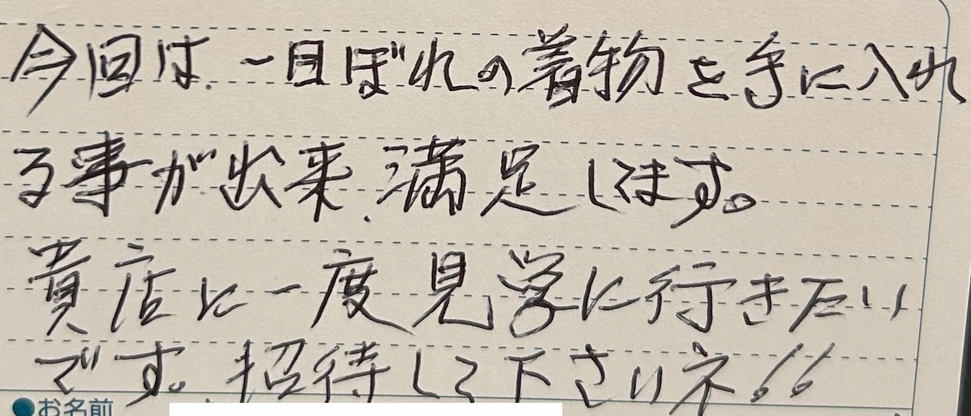 今回は、一目ぼれの着物を手に入れ
る事が出来、満足してます。
貴店に一度見学に行きたい
です。招待して下さいネ!!
●お名前